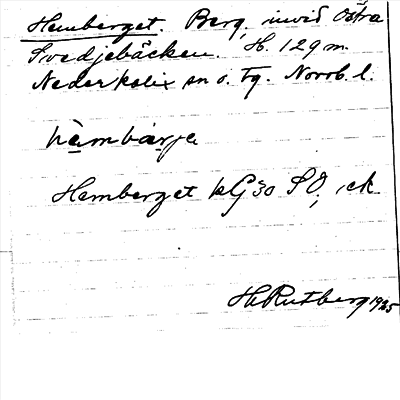 Hemberget. Berg, invid Östra
Svedjebäcken. H. 129 m.
Nederkalix sn o. tg. Norrb. l.
hàmbærje
Hemberget kG30 SO, ek
H. Rutberg 1925